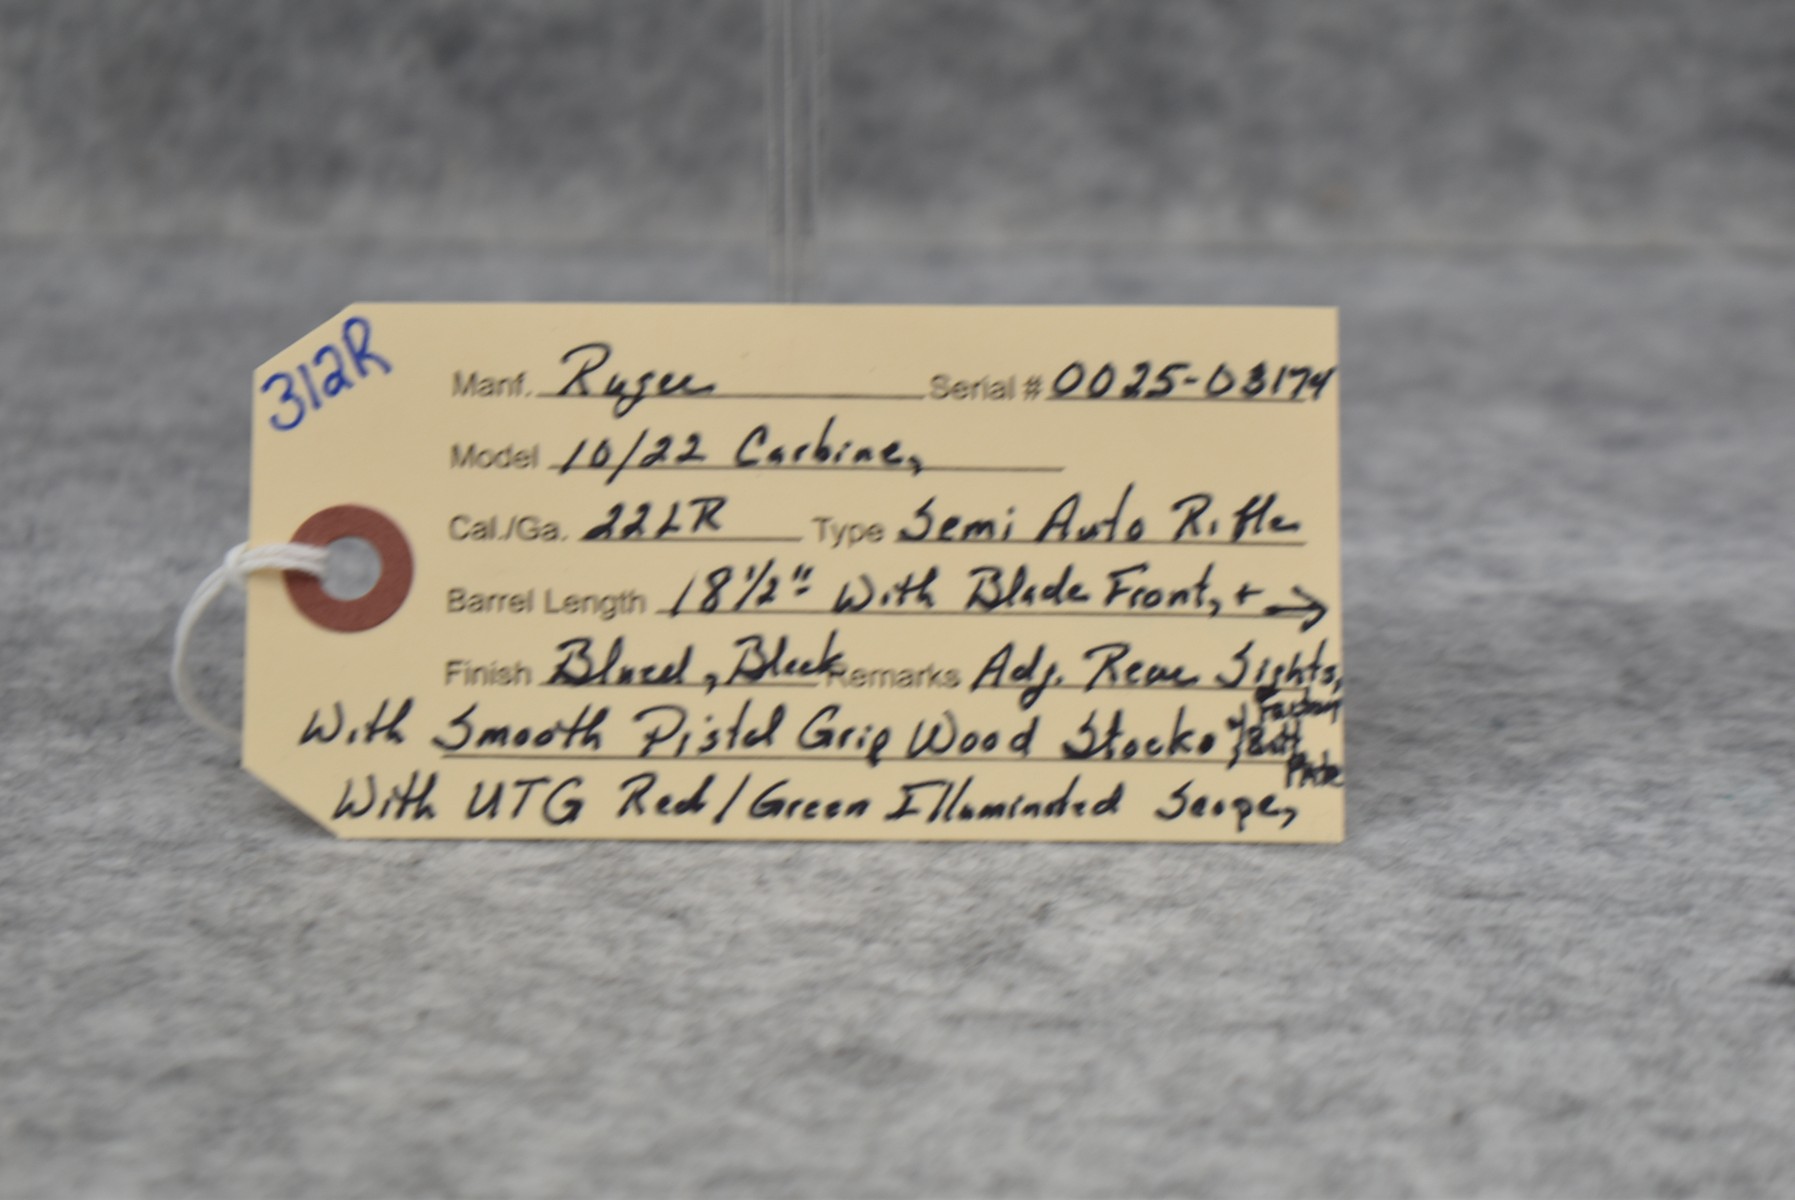 312R
Manf. Ruger Serial # 0025-03174
Model 10/22 Carbine,
Cal./Ga. 22LR Type Semi Auto Rifle
Barrel Length 18 1/2" With Blade Front, + →
Finish Blued, Black Remarks Adj. Rear Sights,
With Smooth Pistol Grip Wood Stocks w/ Factory Butt Plate
With UTG Red/Green Illuminated Scope,